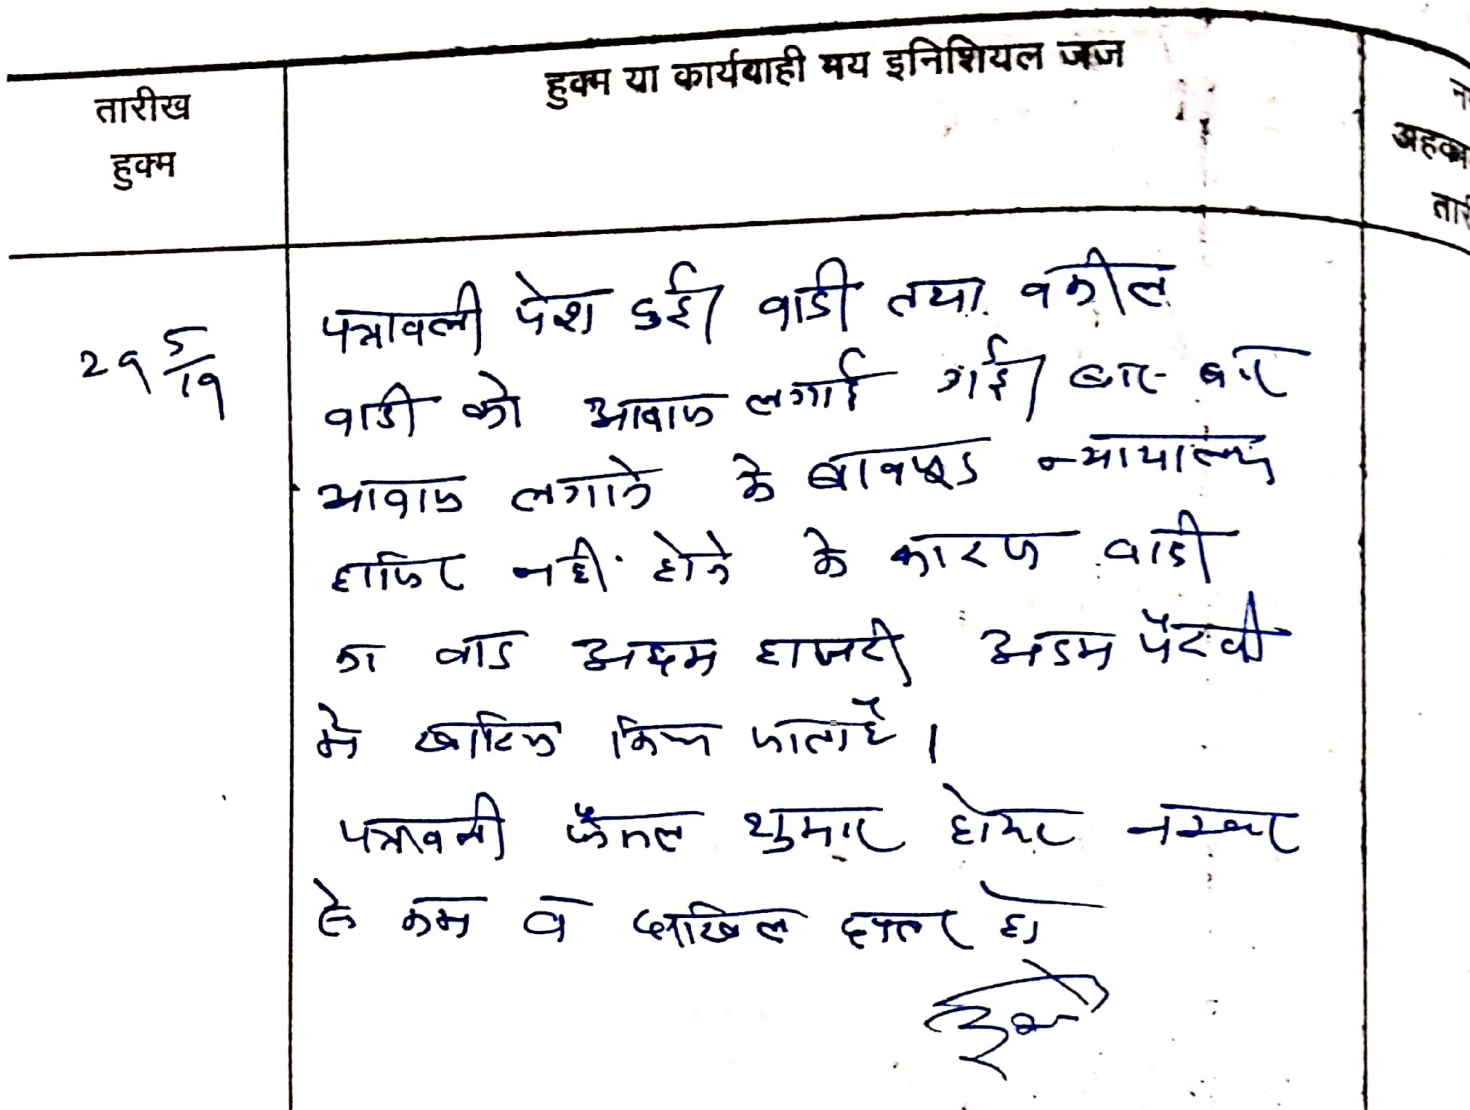 तारीख
हुक्म
हुक्म या कार्यवाही मय इनिशियल जज
अहका
तारी
29 5/19
पत्रावली पेश हुई। वादी तथा वकील
वादी को आवाज लगाई गई। बार-बार
आवाज लगाने के बावजूद न्यायालय
हाजिर नहीं होने के कारण वादी
का वाद अदम हाजरी अदम पैरवी
मे खारिज किया जाता है।
पत्रावली फैसल शुमार होकर नम्बर
से कम व दाखिल दफ्तर हो